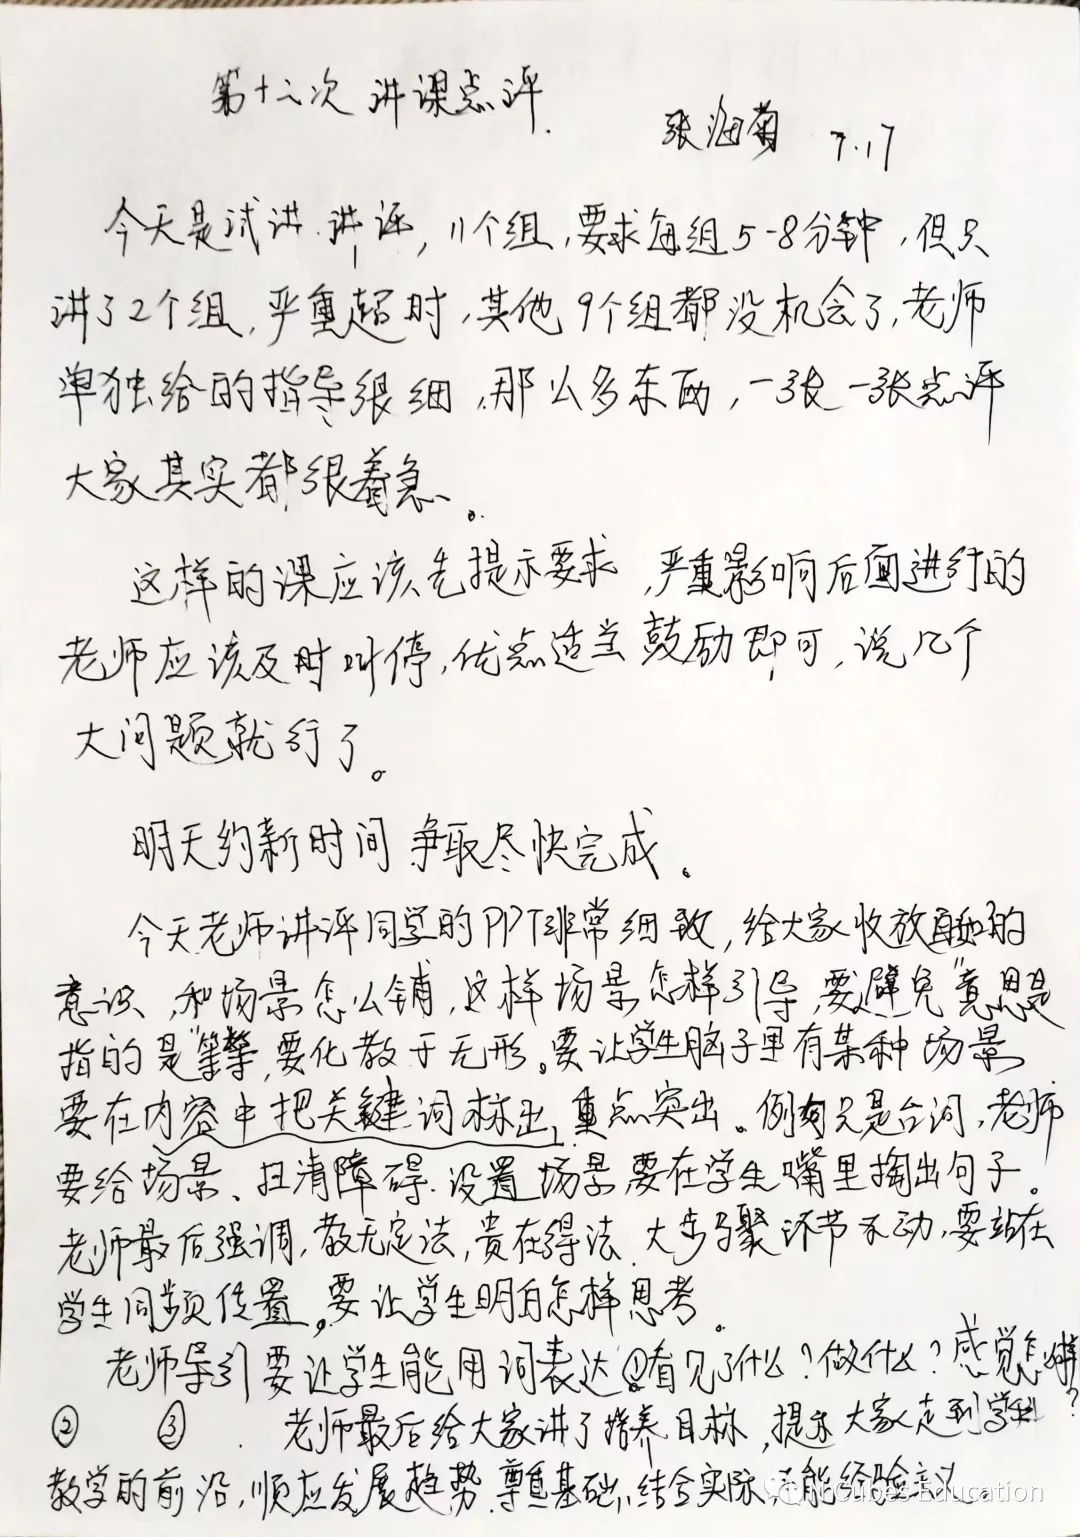 第十六次 讲课点评.
张海菊 7.17
今天是试讲.讲评,11个组,要求每组5-8分钟,但只
讲了2个组,严重超时,其他9个组都没机会了,老师
单独给的指导很细,那么多东西,一张一张点评
大家其实都很着急。
这样的课应该先提示要求,严重影响后面进行的
老师应该及时叫停,优点适当鼓励即可,说几个
大问题就行了。
明天约新时间 争取尽快完成。
今天老师讲评同学的PPT非常细致,给大家收放自如的
意识,和场景怎么铺,这样场景怎样引导,要避免"意思是
指的是"等,要化教于无形。要让学生脑子里有某种场景
要在内容中把关键词标出,重点突出。例如只是台词,老师
要给场景、扫清障碍.设置场景要在学生嘴里掏出句子。
老师最后强调,教无定法,贵在得法.大步骤环节不动,要站在
学生同频位置。要让学生明白怎样思考。
老师导引要让学生能用词表达①看见了什么?做什么?感觉怎样?
② ③. 老师最后给大家讲了培养目标,提示大家走到学科
教学的前沿,顺应发展趋势.尊重基础,结合实际,不能经验主义。
InCubes Education